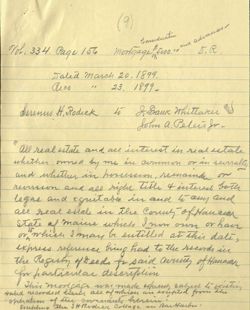 (9)
Vol. 334 Page 156 Mortgage Deed
Dated March 20, 1899.
Rec " 23, 1899.
Serenus H. Rodick to J. Saml Whittaker
John A. Peters Jr.
"All real estate and all interest in real estate
whether owned by me in common or in severalty
and whether in possession, remainder or
reversion and all right title & interest both
legal and equitable in and to any and
all real estate in the County of Hancock
State of Maine which I now own or have
or to which I may be entitled at this date,
express reference being had to the records in
the Registry of Deeds for said County of Hancock
for particular description
This mortgage was made expressly subject to existing
valid recorded
operation of the covenants herein.